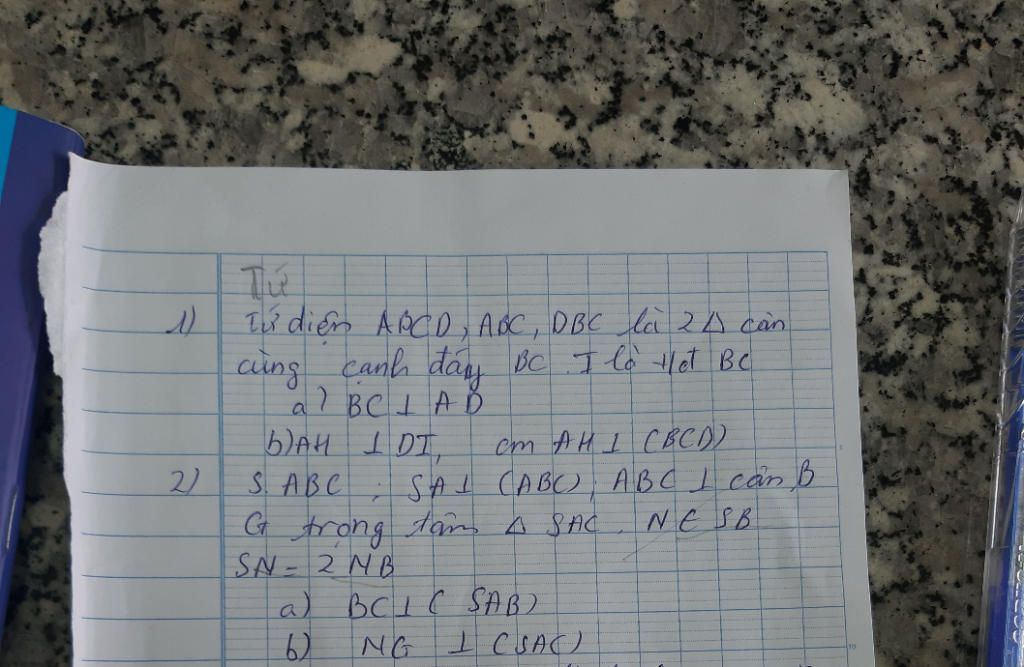 Tứ
1) Tứ diện ABCD, ABC, DBC là 2 Δ cân
cùng cạnh đáy BC. I là tđ BC
a) BC ⊥ AD
b) AH ⊥ DI, cm AH ⊥ (BCD)
2) S.ABC ; SA ⊥ (ABC), ABC ⊥ cân B
G trọng tâm Δ SAC. N ∈ SB
SN = 2 NB
a) BC ⊥ (SAB)
b) NG ⊥ (SAC)